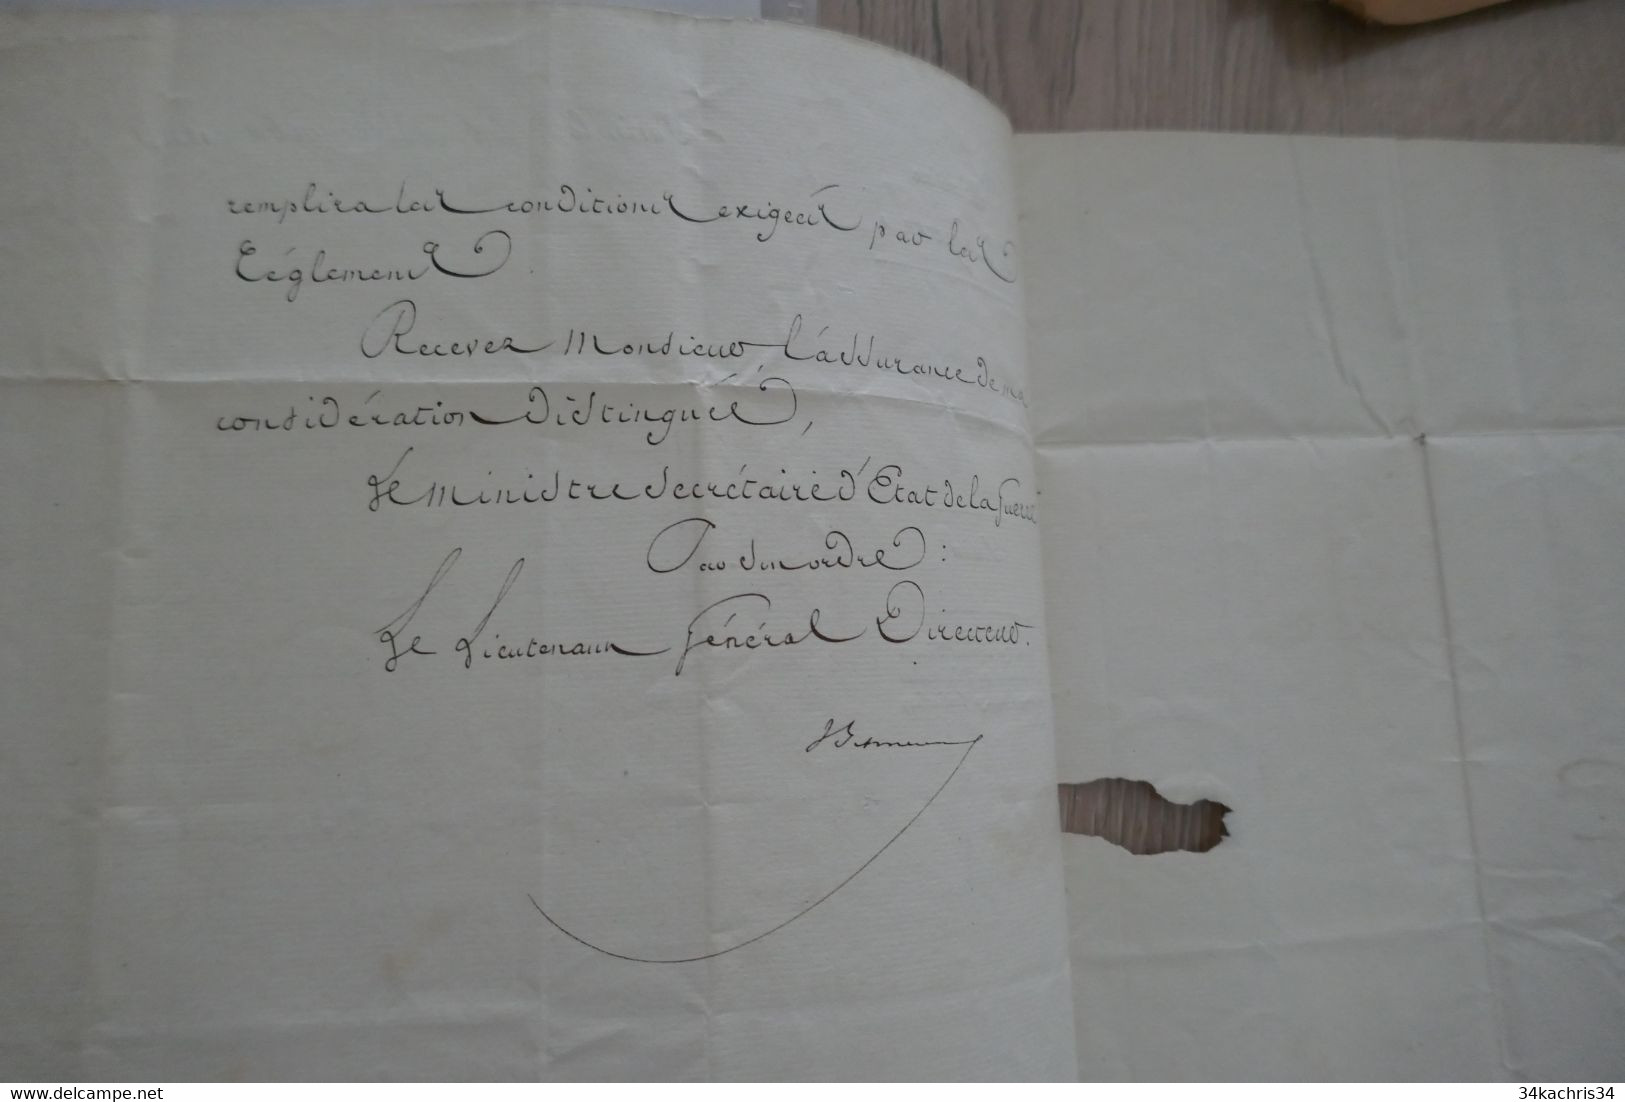 remplira les conditions exigées par les
Réglemens.
Recevez Monsieur l'assurance de ma
considération distinguée,
Le Ministre Secrétaire d'Etat de la Guerre
Par son ordre :
Le Lieutenant Général Directeur.
www.delcampe.net
34kachris34